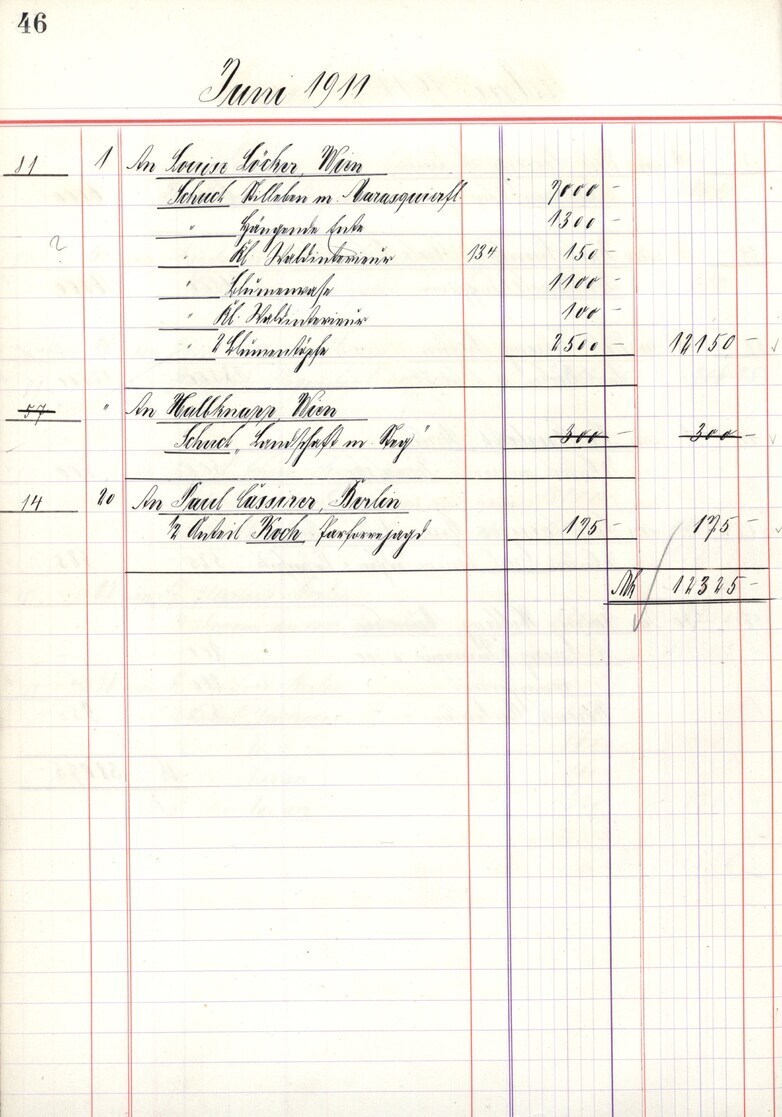 46
Juni 1911
81 1 An Louise Löcker, Wien
Schuch Stilleben m. Marasquinofl. 7000 -
" Hängende Ente 1300 -
? " Kl. Waldinterieur 134 150 -
" Blumenvase 1100 -
" Kl. Waldinterieur 100 -
" 2 Blumentöpfe 2500 - 12150 -
57 " An Halbknapp, Wien
Schuch "Landschaft m. Steg" 300 - 300 -
14 20 An Paul Cassirer, Berlin
1/2 Anteil Koch Parforcejagd 175 - 175 -
Mk 12325 -